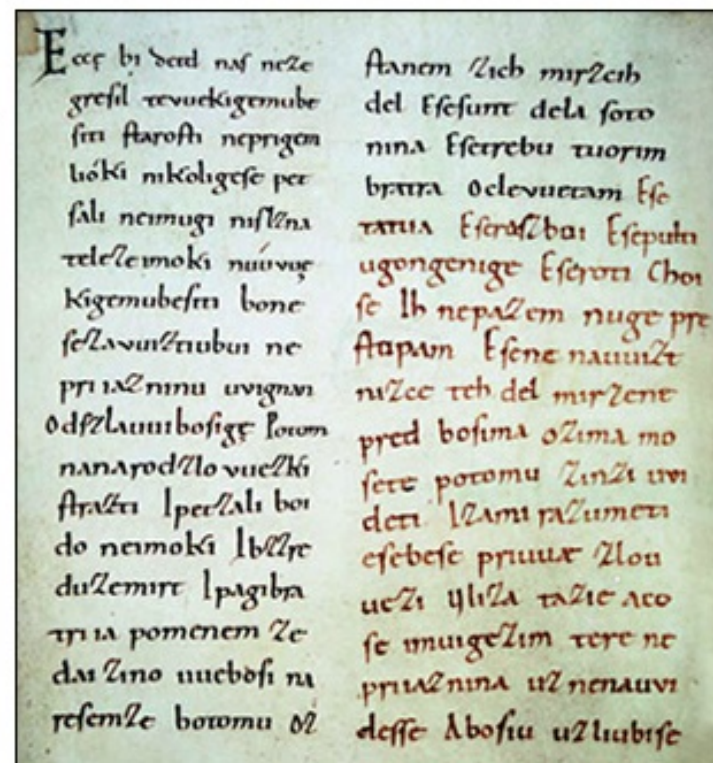 Eccę bi detd naſ neze
greſil tevuekigemube
ſiti ſtaroſti neprigem
lióki nikoligeſe pet
ſali neimugi niſlzna
telezeimoki nuúvuę
kigemubeſiti bone
ſezavuiztiubui ne
priiazninu uvignan
Odſzlauuiboſigę Potom
nanarodzlovuezki
ſtrazti Ipetzali boi
do neimoki Ibzzre
duzemirt Ipagibra
triia pomenem ze
dai zino uueboſi na
reſemze botomu oz
ſtanem zich mirzcih
del Eſeſunt dela ſoto
nina Eſetrebu tuorim
bratra Oclevuetam Eſe
tatua Eſerazboi Eſepulti
ugongenige Eſeroti Choi
ſe Ih nepazem nuge pre
ſtopam Eſene nauuizt
nizce teh del mirzene
pred boſima ozima mo
ſete potomu zinzi uvi
deti Izami razumeti
eſebeſe priuuæ zlou
uezi Uliza tazie aco
ſe imuigezim tere ne
priiaznina uznenauvi
deſſe Aboſiu uzliubiſe